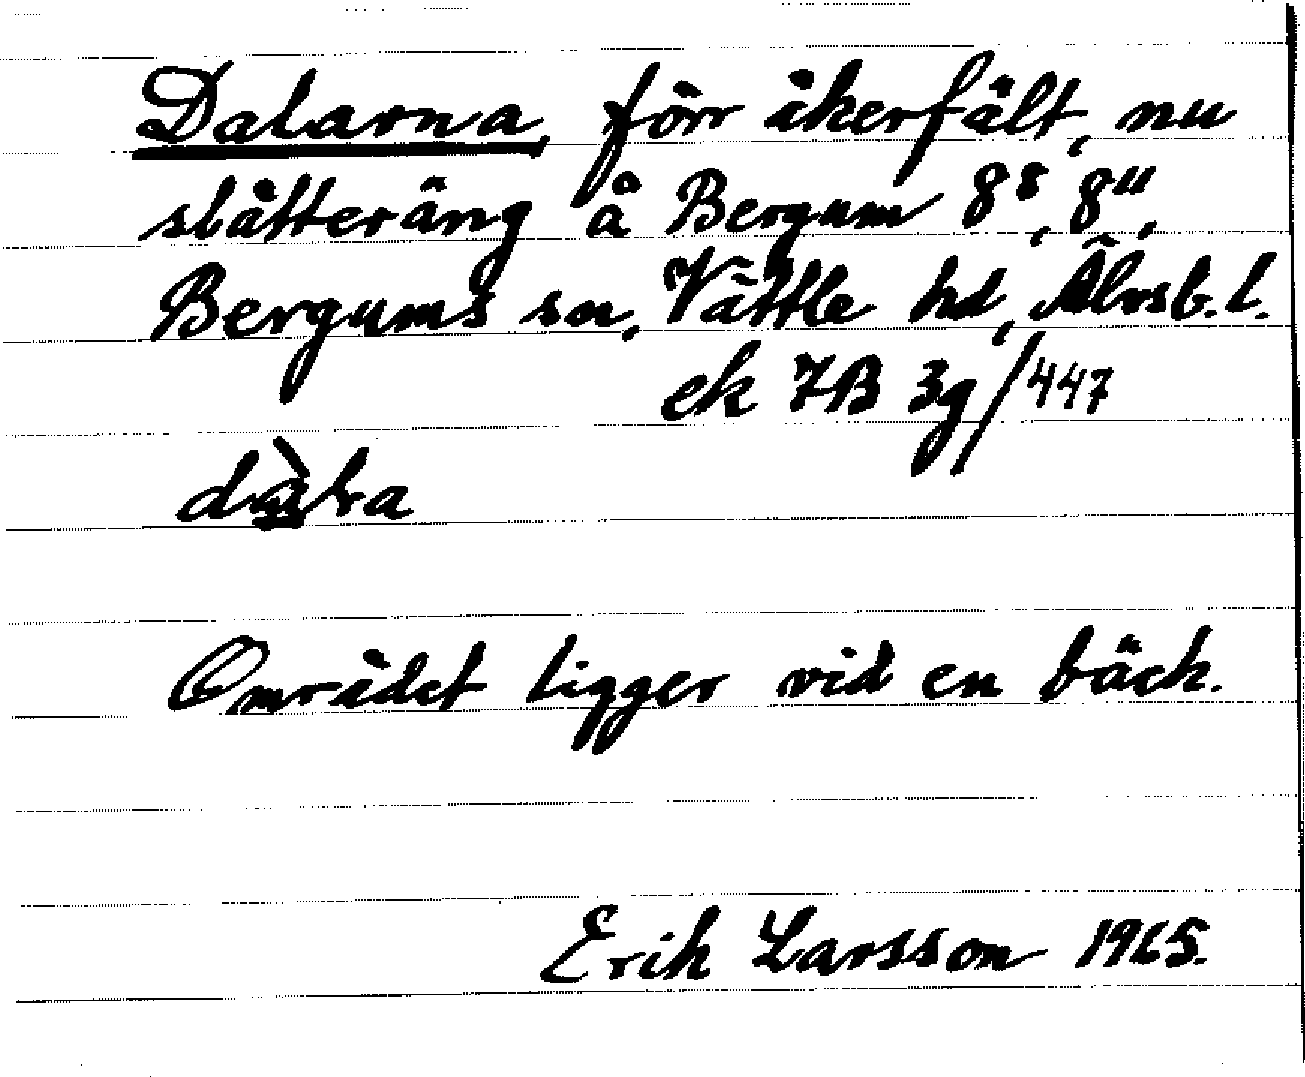 Dalarna, förr åkerfält, nu
slåtteräng å Bergum 8⁸, 8¹¹,
Bergums sn, Vättle hd, Älvsb. l.
ek 7B 3g/447
dàla
Området ligger vid en bäck.
Erik Larsson 1965.